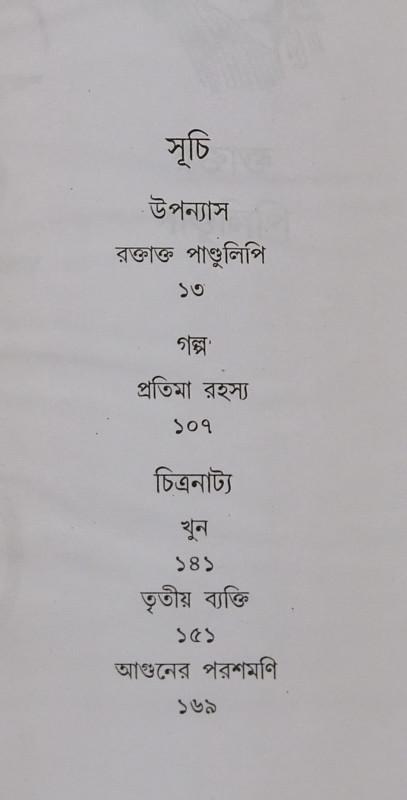 সূচি
উপন্যাস
রক্তাক্ত পাণ্ডুলিপি
১৩
গল্প
প্রতিমা রহস্য
১০৭
চিত্রনাট্য
খুন
১৪১
তৃতীয় ব্যক্তি
১৫১
আগুনের পরশমণি
১৬৯